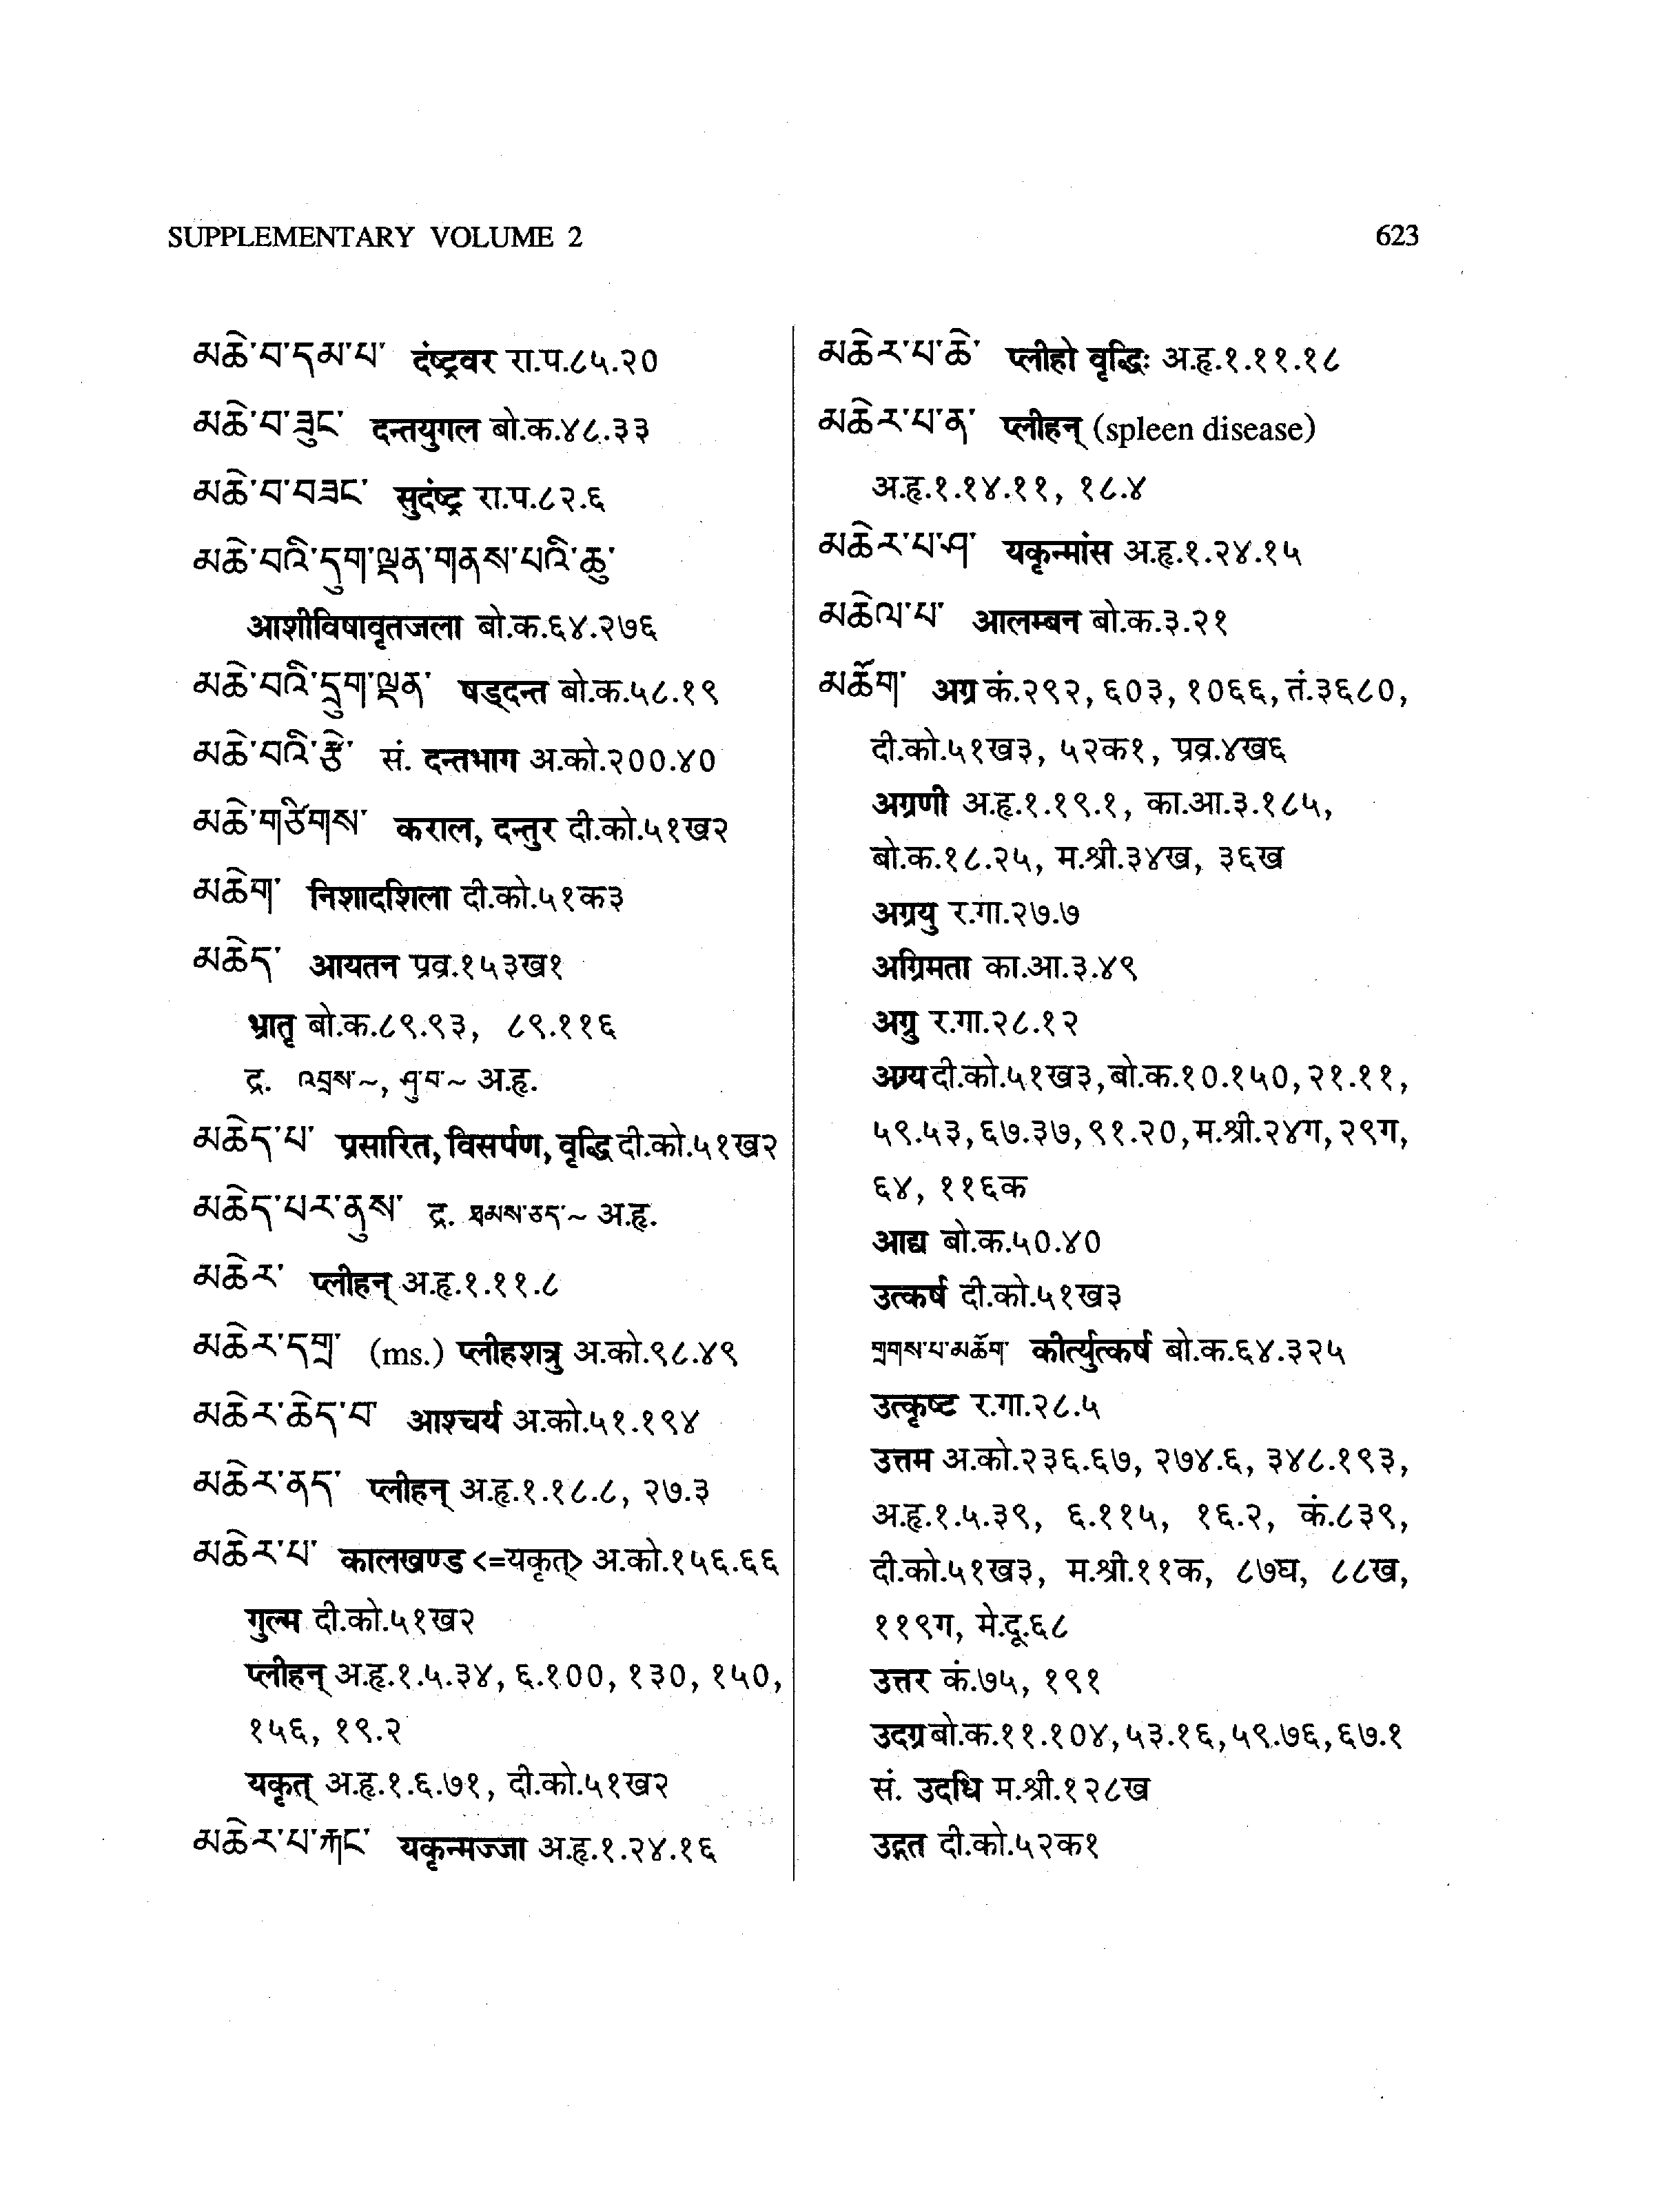 SUPPLEMENTARY VOLUME 2
623
མཆེ་བ་དམ་པ་ दंष्ट्रवर रा.प.८५.२०
མཆེ་བ་ཟུང་ दन्तयुगल बो.क.४८.३३
མཆེ་བ་བཟང་ सुदंष्ट्र रा.प.८२.६
མཆེ་བའི་དུག་ལྡན་གནས་པའི་ཆུ་
आशीविषावृतजला बो.क.६४.२७६
མཆེ་བའི་དྲུག་ལྡན་ षड्दन्त बो.क.५८.१९
མཆེ་བའི་རྩེ་ सं. दन्तभाग अ.को.२००.४०
མཆེ་གཙིགས་ कराल, दन्तुर दी.को.५१ख२
མཆེག་ निशादशिला दी.को.५१क३
མཆེད་ आयतन प्रव्र.१५३ख१
भ्रातृ बो.क.८९.९३, ८९.११६
द्र. འབྲས་~, ཤུ་བ་~ अ.हृ.
མཆེད་པ་ प्रसारित, विसर्पण, वृद्धि दी.को.५१ख२
མཆེད་པར་ནུས་ द्र. ཐམས་ཅད་~ अ.हृ.
མཆེར་ प्लीहन् अ.हृ.१.११.८
མཆེར་དགྲ་ (ms.) प्लीहशत्रु अ.को.९८.४९
མཆེར་ཆེད་བ་ आश्चर्य अ.को.५१.१९४
མཆེར་ནད་ प्लीहन् अ.हृ.१.१८.८, २७.३
མཆེར་པ་ कालखण्ड <=यकृत्> अ.को.१५६.६६
गुल्म दी.को.५१ख२
प्लीहन् अ.हृ.१.५.३४, ६.१००, १३०, १५०,
१५६, १९.२
यकृत् अ.हृ.१.६.७१, दी.को.५१ख२
མཆེར་པ་རྐང་ यकृन्मज्जा अ.हृ.१.२४.१६
མཆེར་པ་ཆེ་ प्लीहो वृद्धिः अ.हृ.१.११.१८
མཆེར་པ་ན་ प्लीहन् (spleen disease)
अ.हृ.१.१४.११, १८.४
མཆེར་པ་ཤ་ यकृन्मांस अ.हृ.१.२४.१५
མཆེལ་པ་ आलम्बन बो.क.३.२१
མཆོག་ अग्र कं.२९२, ६०३, १०६६, तं.३६८०,
दी.को.५१ख३, ५२क१, प्रव्र.४ख६
अग्रणी अ.हृ.१.१९.१, का.आ.३.१८५,
बो.क.१८.२५, म.श्री.३४ख, ३६ख
अग्रयु र.गा.२७.७
अग्रिमता का.आ.३.४९
अग्रु र.गा.२८.१२
अग्र्य दी.को.५१ख३, बो.क.१०.१५०, २१.११,
५९.५३, ६७.३७, ९१.२०, म.श्री.२४ग, २९ग,
६४, ११६क
आद्य बो.क.५०.४०
उत्कर्ष दी.को.५१ख३
གྲགས་པ་མཆོག་ कीर्त्युत्कर्ष बो.क.६४.३२५
उत्कृष्ट र.गा.२८.५
उत्तम अ.को.२३६.६७, २७४.६, ३४८.१९३,
अ.हृ.१.५.३९, ६.११५, १६.२, कं.८३९,
दी.को.५१ख३, म.श्री.११क, ८७घ, ८८ख,
११९ग, मे.दू.६८
उत्तर कं.७५, १९१
उदग्र बो.क.११.१०४, ५३.१६, ५९.७६, ६७.१
सं. उदधि म.श्री.१२८ख
उद्गत दी.को.५२क१